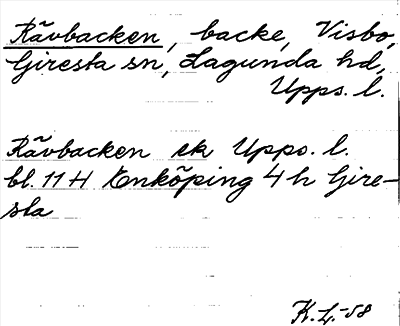 Rävbacken, backe, Visbo,
Giresta sn, Lagunda hd,
Upps. l.
Rävbacken ek Upps. l.
bl. 11 H Enköping 4 h Gire-
sta
K.L.-58